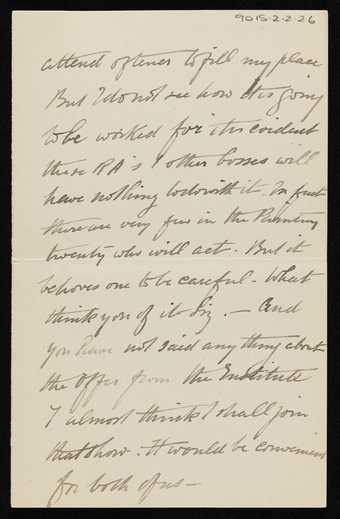 9015-2-2-26
attend oftener to fill my place
But I do not see how it is going
to be worked for it is evident
these RA's & other bosses will
have nothing to do with it. In fact
there are very few in the
twenty who will act. But it
behoves one to be careful. What
think you of it Liz. — And
you have not said anything about
the Offer from the Institute
I almost think I shall join
that show. It would be convenient
for both of us —